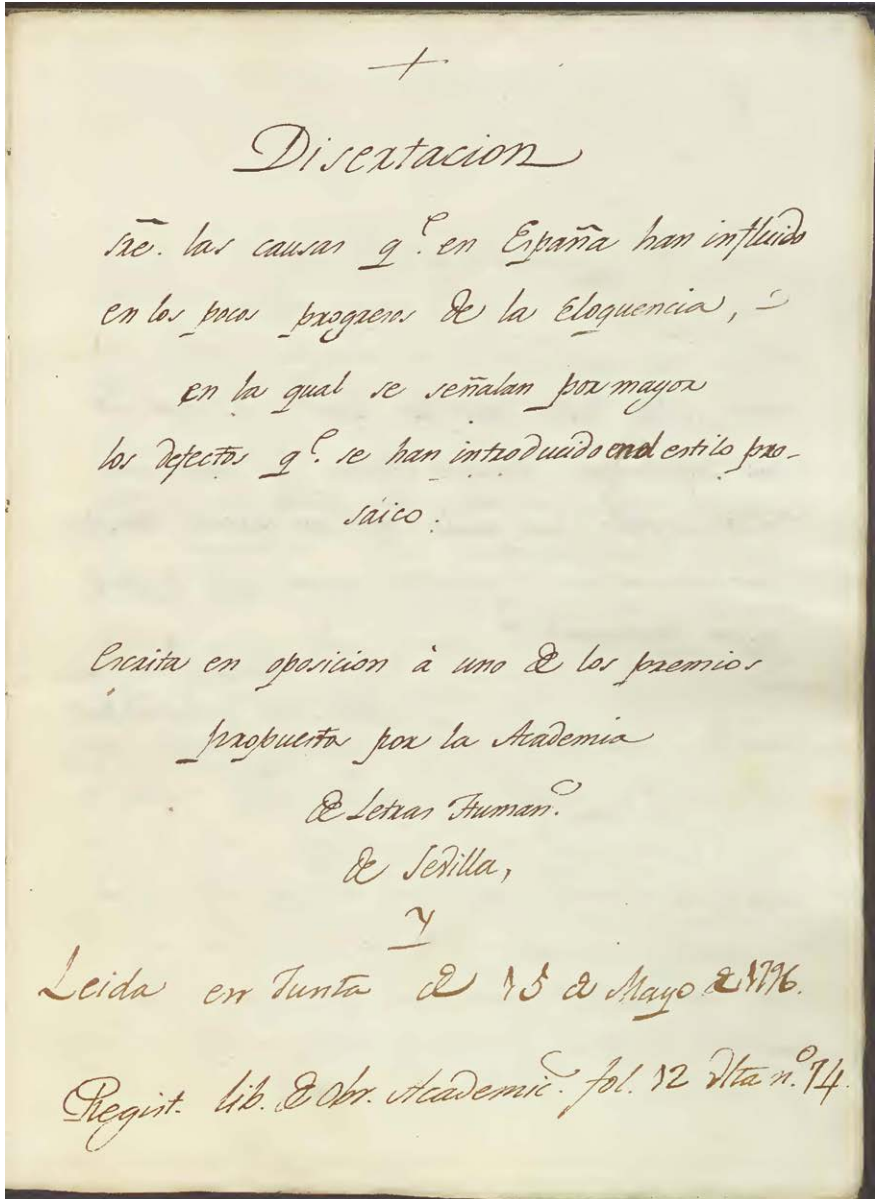 +
Disertacion
sr̃e. las causas q.e en España han influido
en los pocos progresos de la Eloquencia, =
en la qual se señalan por mayor
los defectos q.e se han introducido en el estilo pro-
sáico.
Escrita en oposicion à uno de los premios
propuesto por la Academia
de Letras Human.s
de Sevilla,
y
Leida en Junta de 15 de Mayo de 1796.
Regist. lib. de Obr. Academic.s fol. 12 vlta n.o 14.